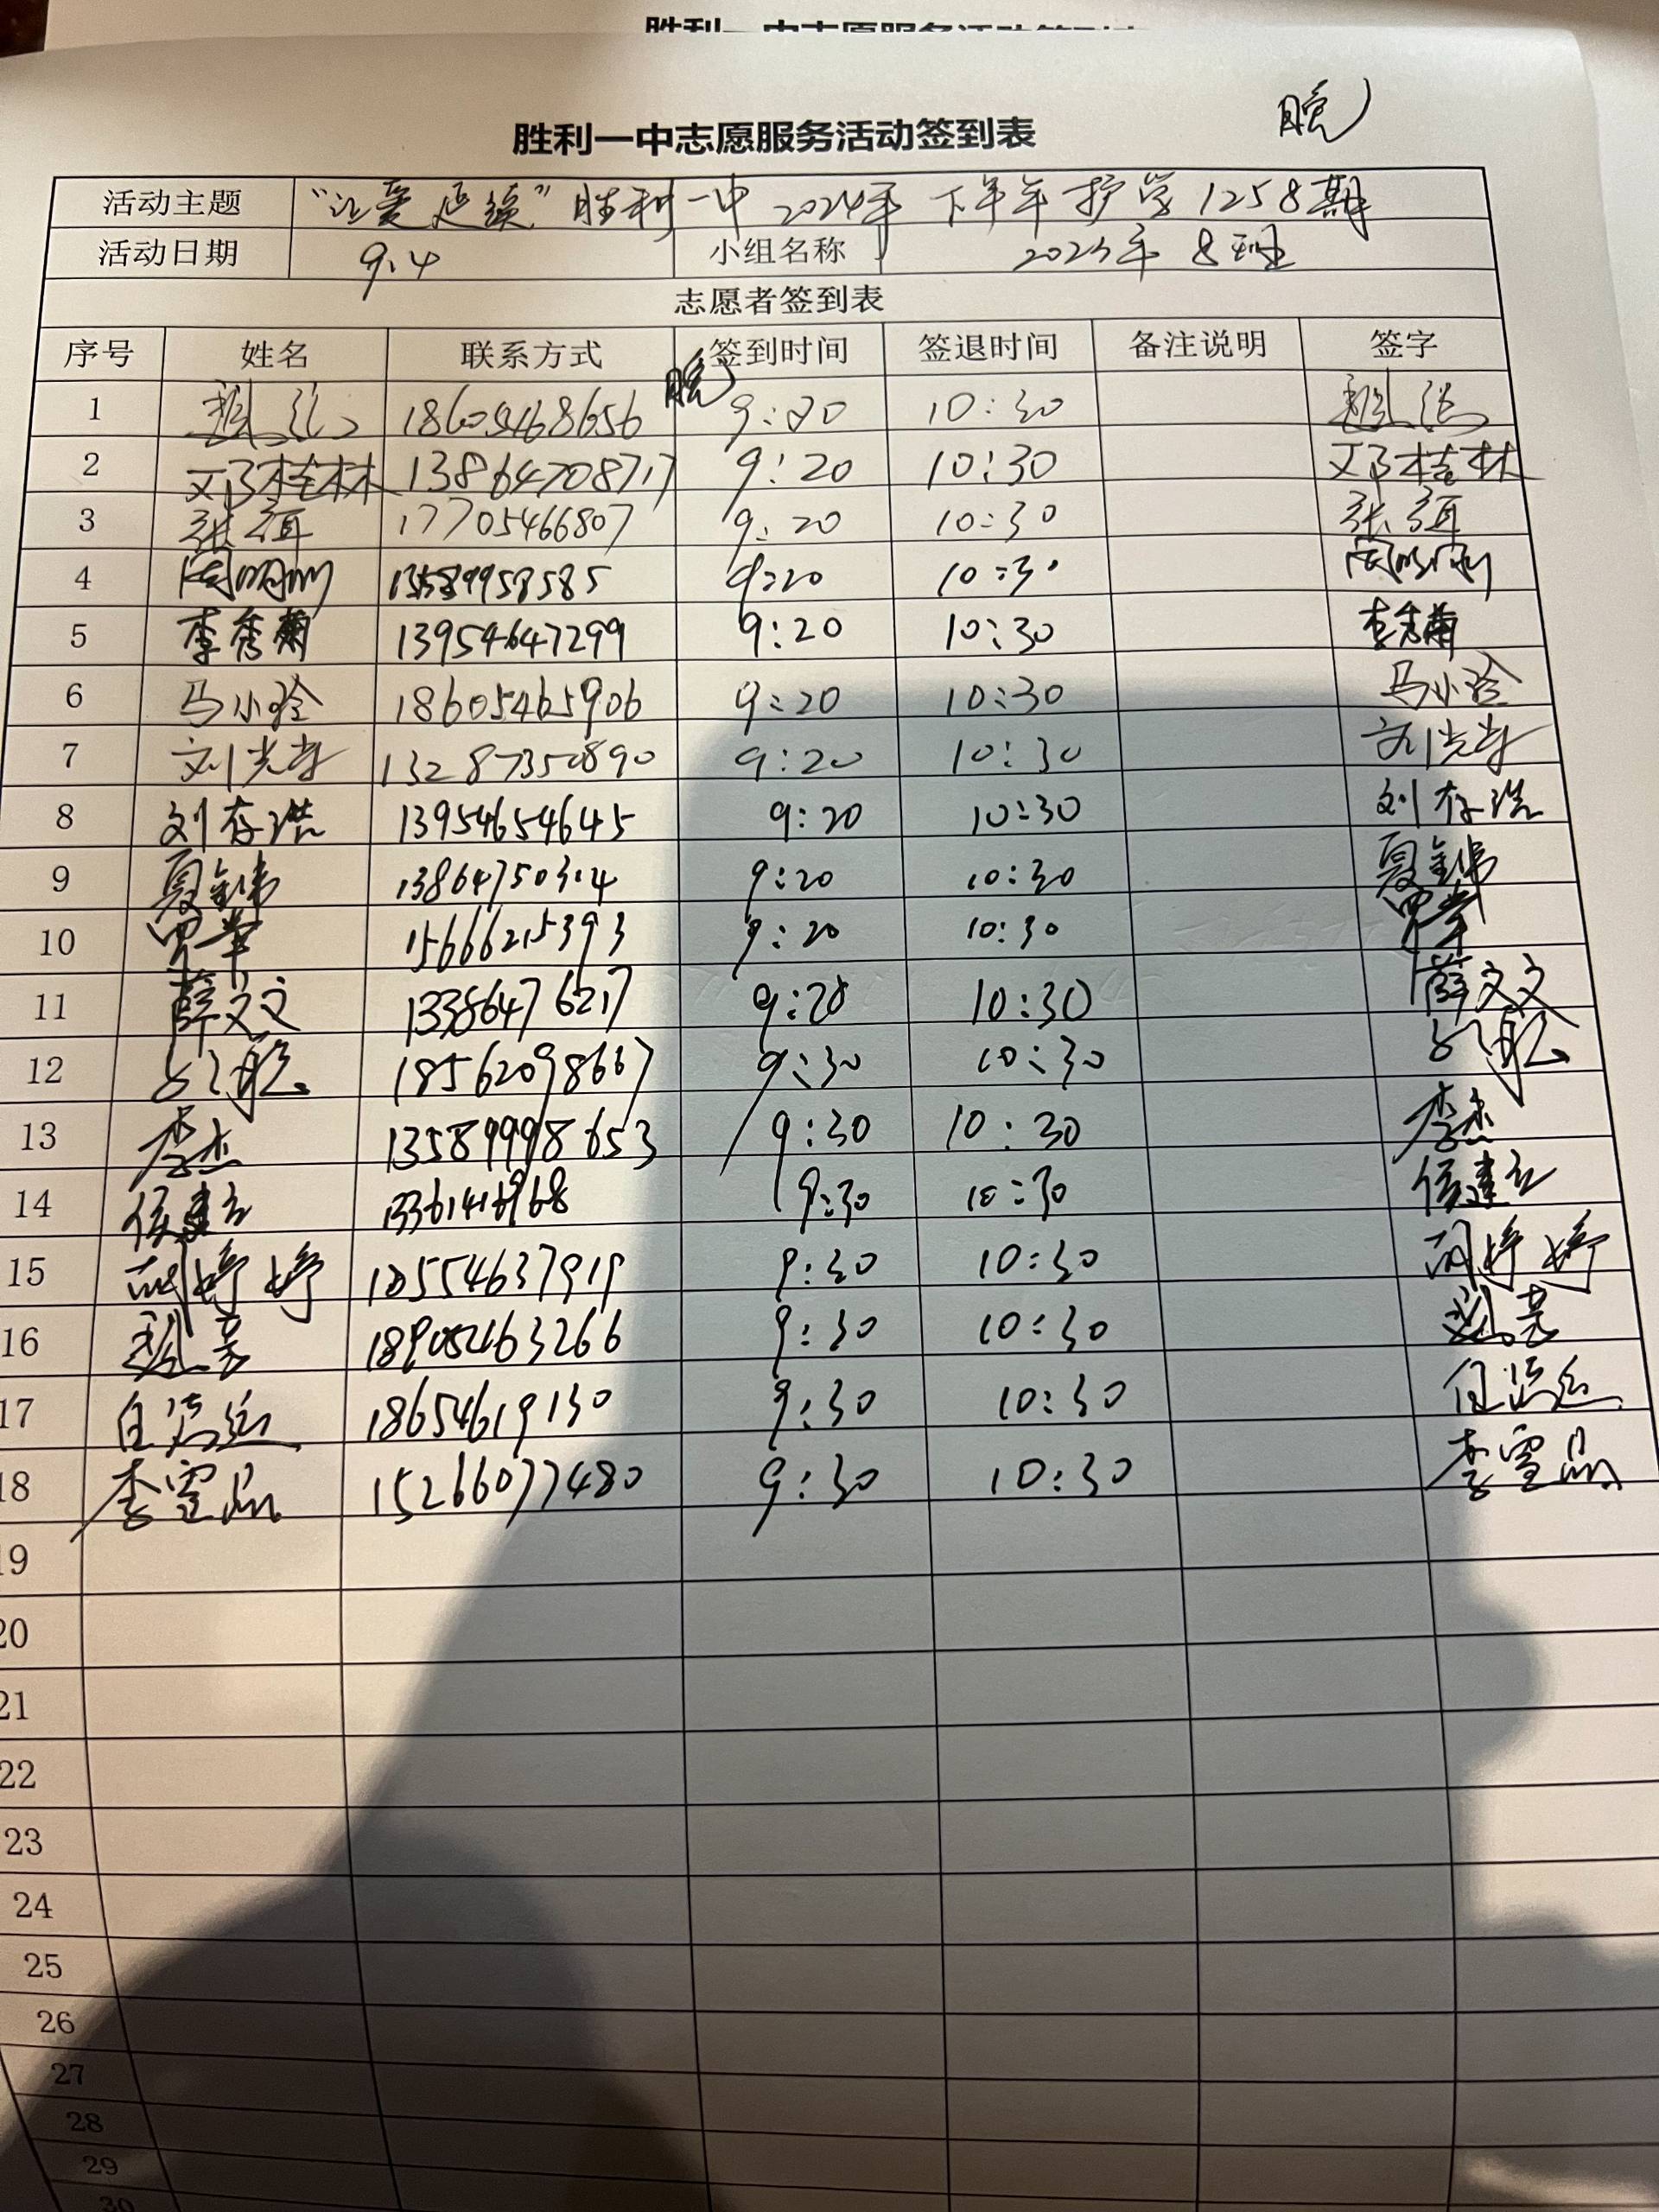 胜利一中志愿服务活动签到表
晚
胜利一中志愿服务活动签到表
活动主题 “让爱延续”胜利一中 2024年 下半年 护学 1258期
活动日期 9.4 小组名称 2023年 8班
志愿者签到表
序号 姓名 联系方式 签到时间 签退时间 备注说明 签字
晚
1 18605468656 9:20 10:30
2 邓桂林 13864708717 9:20 10:30 邓桂林
3 张 17705466807 9:20 10:30 张
4 周明刚 13589958585 9:20 10:30 周明刚
5 李秀菊 13954647299 9:20 10:30 李秀菊
6 马小玲 18605465906 9:20 10:30 马小玲
7 刘光 13287350890 9:20 10:30 刘光
8 刘存浩 13954654645 9:20 10:30 刘存浩
9 夏 13864750314 9:20 10:30 夏
10 15666215393 9:20 10:30
11 薛文文 13386476217 9:20 10:30 薛文文
12 18562098667 9:30 10:30
13 李杰 13589998653 9:30 10:30 李杰
14 侯建立 9:30 10:30 侯建立
15 胡婷婷 9:30 10:30 胡婷婷
16 赵芸 18905463266 9:30 10:30 赵芸
17 18654619130 9:30 10:30
18 李雪晶 15266077480 9:30 10:30 李雪晶
19
20
21
22
23
24
25
26
27
28
29
30